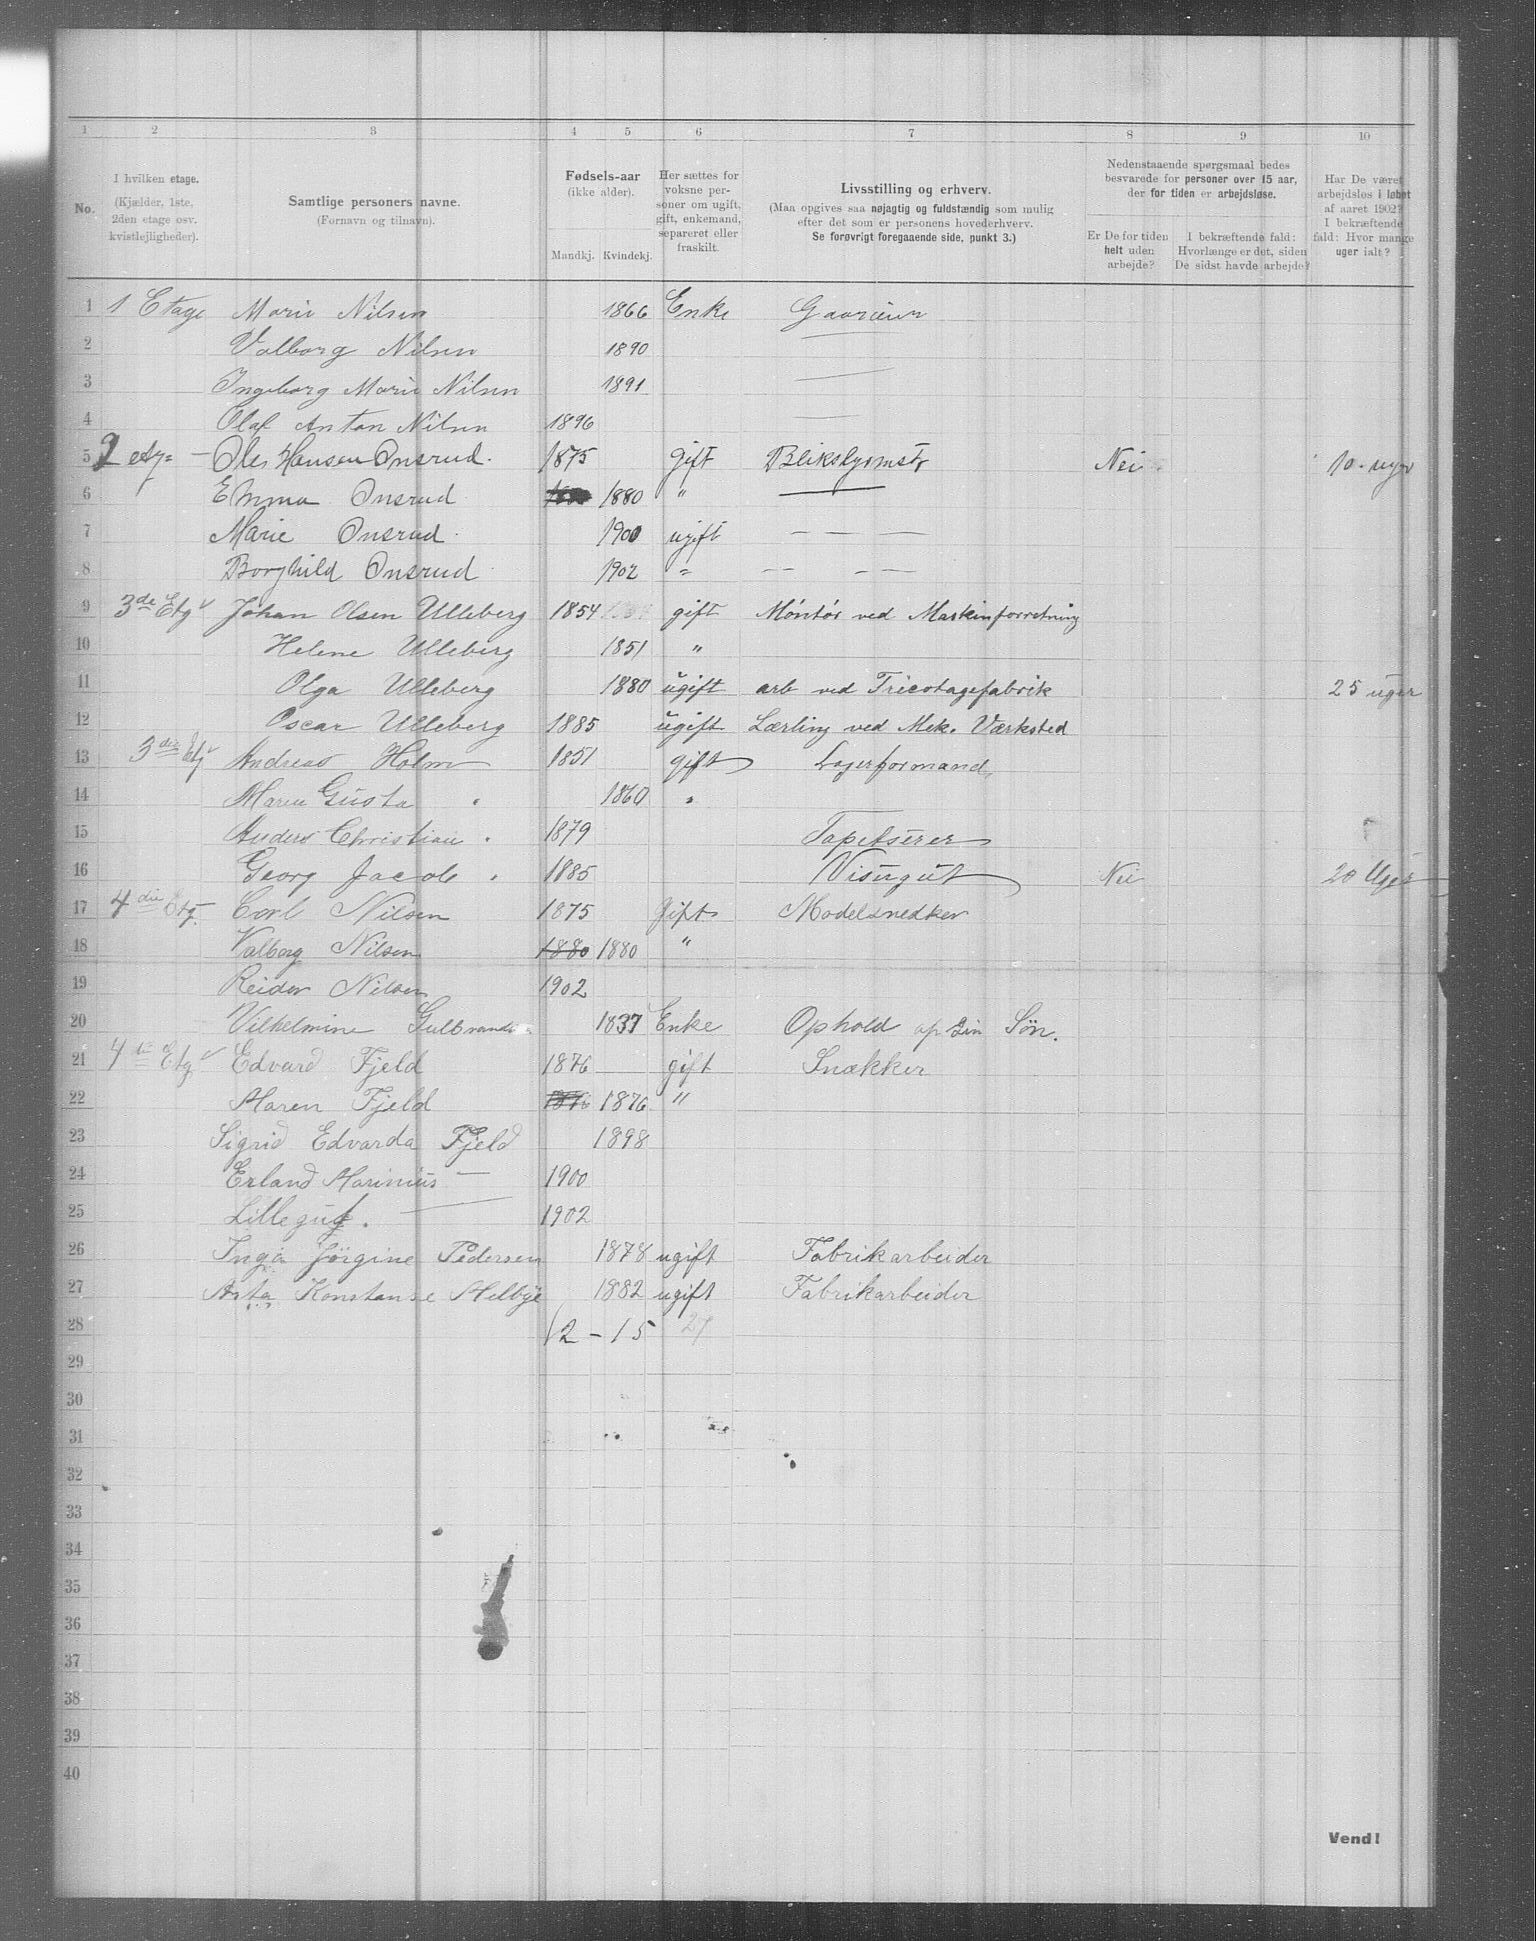 1 2 3 4 5 6 7 8 9 10
No.
I hvilken etage.
(Kjælder, 1ste,
2den etage osv.
kvistlejligheder).
Samtlige personers navne.
(Fornavn og tilnavn).
Fødsels-aar
(ikke alder).
Mandkj. Kvindekj.
Her sættes for
voksne per-
soner om ugift,
gift, enkemand,
separeret eller
fraskilt.
Livsstilling og erhverv.
(Maa opgives saa nøjagtig og fuldstændig som mulig
efter det som er personens hovederhverv.
Se forøvrigt foregaaende side, punkt 3.)
Nedenstaaende spørgsmaal bedes
besvarede for personer over 15 aar,
der for tiden er arbejdsløse.
Er De for tiden
helt uden
arbejde?
I bekræftende fald:
Hvorlænge er det, siden
De sidst havde arbejde?
Har De været
arbejdsløs i løbet
af aaret 1902?
I bekræftende
fald: Hvor mange
uger ialt?
1 1 Etage Marie Nilsen 1866 Enke
2 Valborg Nilsen 1890
3 Ingeborg Marie Nilsen 1891
4 Olaf Anton Nilsen 1896
5 2 etg= Ole Hansen Onsrud. 1875 gift Blikslygermstr Nei 10. uger
6 Emma Onsrud 1880 "
7 Marie Onsrud 1900 ugift — — —
8 Borghild Onsrud 1902 " — — —
9 3de Etg Johan Olsen Ulleberg 1854 gift Montør ved Maskinforretning
10 Helene Ulleberg 1851 "
11 Olga Ulleberg 1880 ugift arb ved Tricotagefabrik 25 uger
12 Oscar Ulleberg 1885 ugift Lærling ved Mek. Værksted
13 3die Etg Andreas Holm 1851 gift Lagerformand
14 Maren Gusta " 1860 "
15 Anders Christian " 1879 Tapetserer
16 Georg Jacob " 1885 Visergut Nei 20 Uger
17 4die Etg. Carl Nilsen 1875 Gift Modelsnedker
18 Valborg Nilsen 1880 1880 "
19 Reidar Nilsen 1902
20 Vilhelmine Gulbrandsen 1837 Enke Ophold af sin Søn.
21 4de Etg. Edvard Fjeld 1876 gift Snækker
22 Maren Fjeld 1876 1876 "
23 Sigrid Edvarda Fjeld 1898
24 Erland Marinius — 1900
25 Lillegut. — 1902
26 Inga Jørgine Pedersen 1878 ugift Fabrikarbeider
27 Asta Konstanse Melbye 1882 ugift Fabrikarbeider
28 12 – 15 27
29
30
31
32
33
34
35
36
37
38
39
40
Vend!